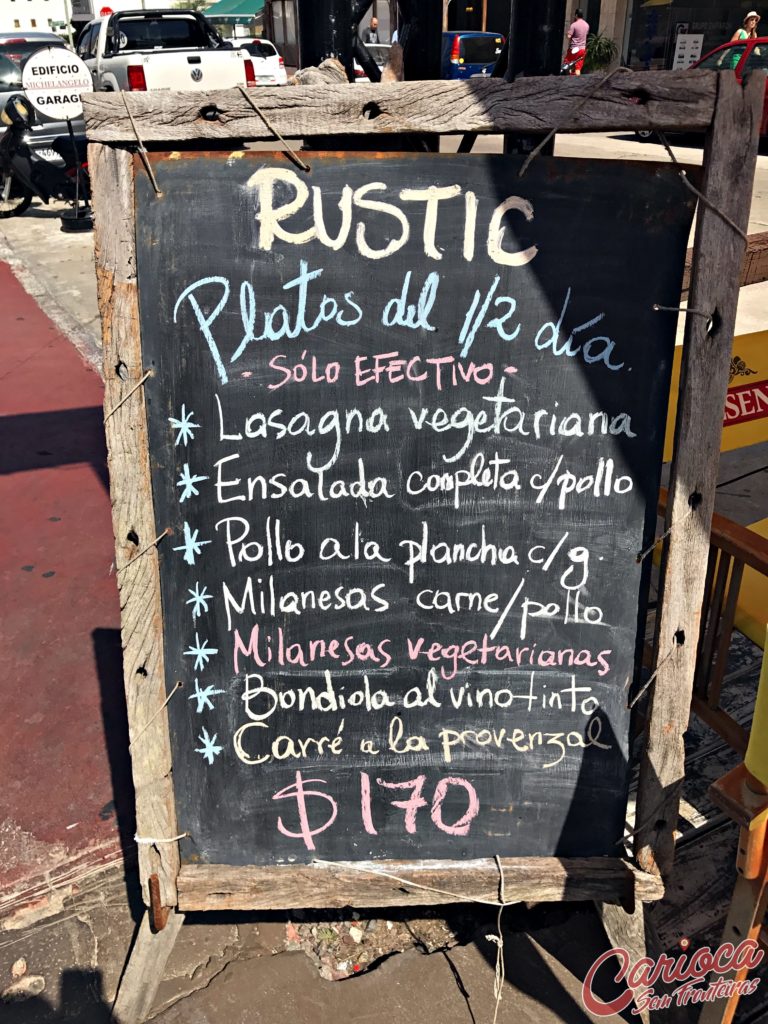 EDIFICIO
MICHELANGELO
GARAGE
RUSTIC
Platos del 1/2 día.
- SÓLO EFECTIVO -
* Lasagna vegetariana
* Ensalada completa c/pollo
* Pollo a la plancha c/g.
* Milanesas carne/pollo
* Milanesas vegetarianas
* Bondiola al vino tinto
* Carré a la provenzal
$170
SEN
Carioca
Sem Fronteiras